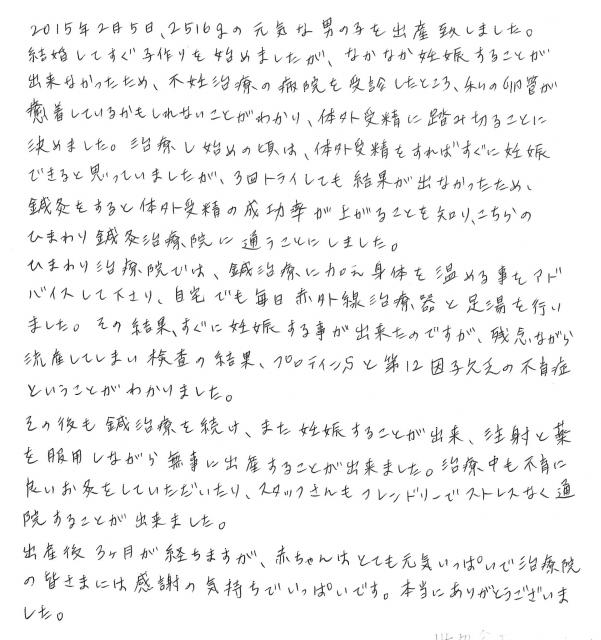 2015年2月5日、2516gの元気な男の子を出産致しました。
結婚してすぐ子作りを始めましたが、なかなか妊娠することが
出来なかったため、不妊治療の病院を受診したところ、私の卵管が
癒着しているかもしれないことがわかり、体外受精に踏み切ることに
決めました。治療し始めの頃は、体外受精をすればすぐに妊娠
できると思っていましたが、3回トライしても結果が出なかったため、
鍼灸をすると体外受精の成功率が上がることを知り、こちらの
ひまわり鍼灸治療院に通うことにしました。
ひまわり治療院では、鍼治療に加え身体を温める事をアド
バイスして下さり、自宅でも毎日赤外線治療器と足湯を行い
ました。その結果、すぐに妊娠する事が出来たのですが、残念ながら
流産してしまい検査の結果、プロテインSと第12因子欠乏の不育症
ということがわかりました。
その後も鍼治療を続け、また妊娠することが出来、注射と薬
を服用しながら無事に出産することが出来ました。治療中も不育に
良いお灸をしていただいたり、スタッフさんもフレンドリーでストレスなく通
院することが出来ました。
出産後3ヶ月が経ちますが、赤ちゃんはとても元気いっぱいで治療院
の皆さまには感謝の気持ちでいっぱいです。本当にありがとうございま
した。